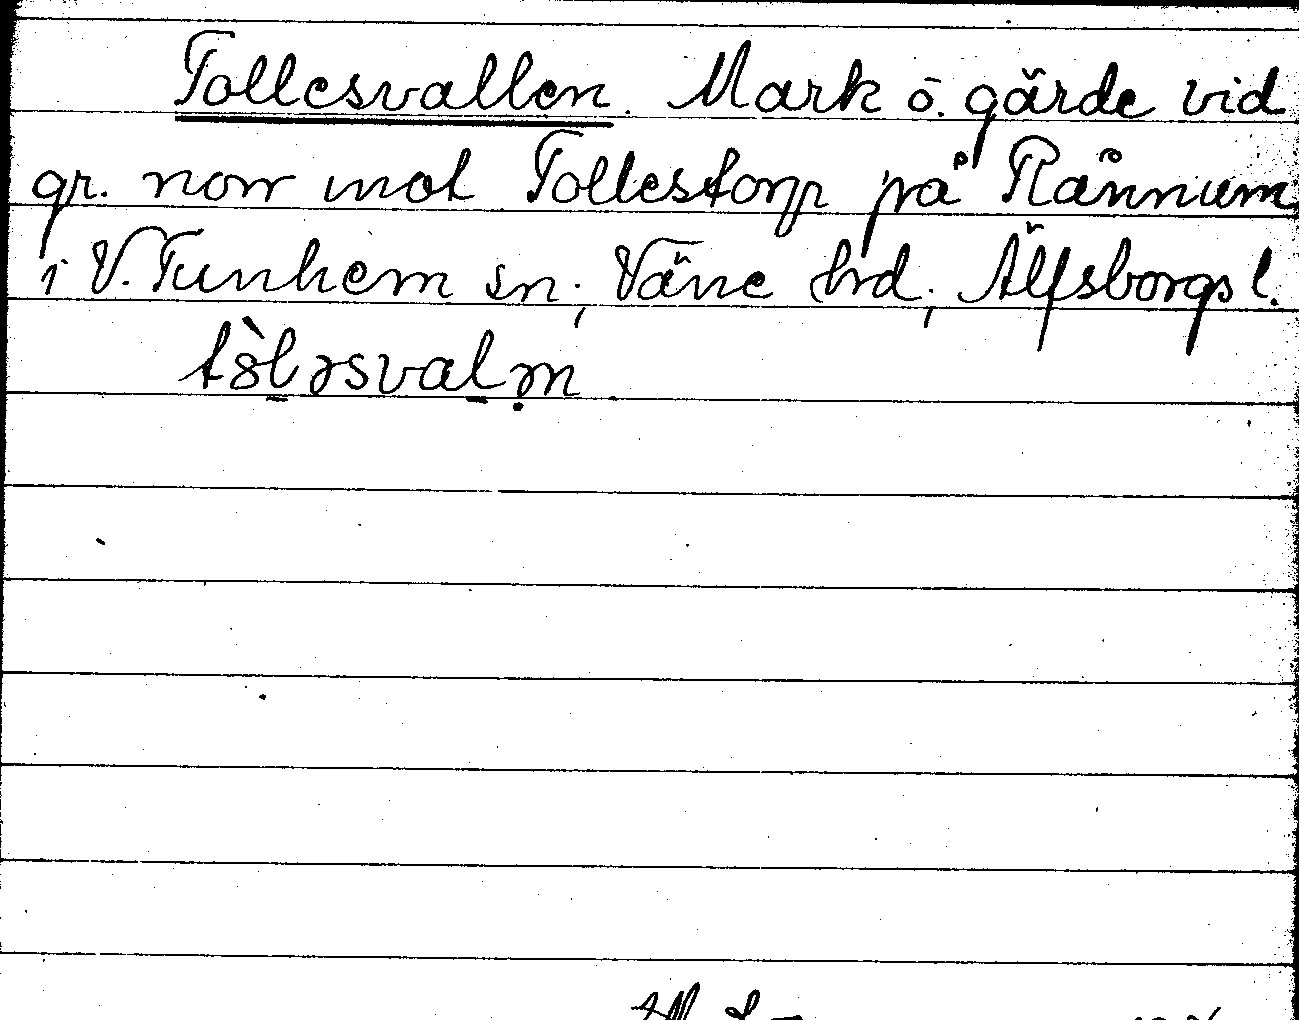 Tollesvallen. Mark ö. gärde vid
gr. norr mot Tollestorp på Rånnum
i V. Tunhem sn; Väne hrd; Älfsborgs l.